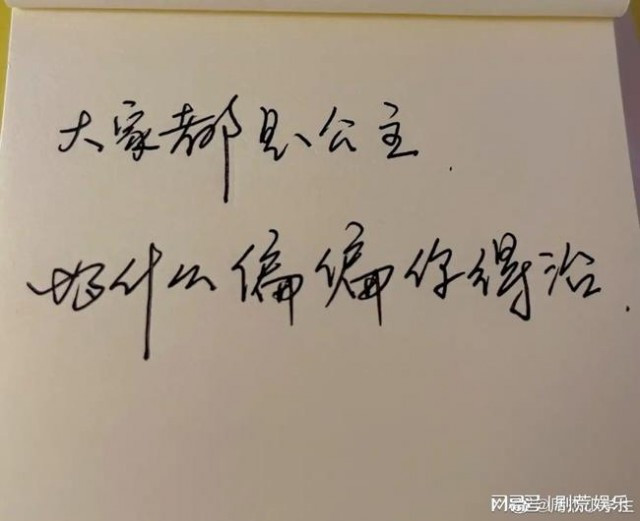 大家都是公主.
为什么偏偏你得治.
网易号 | 剧荒娱乐